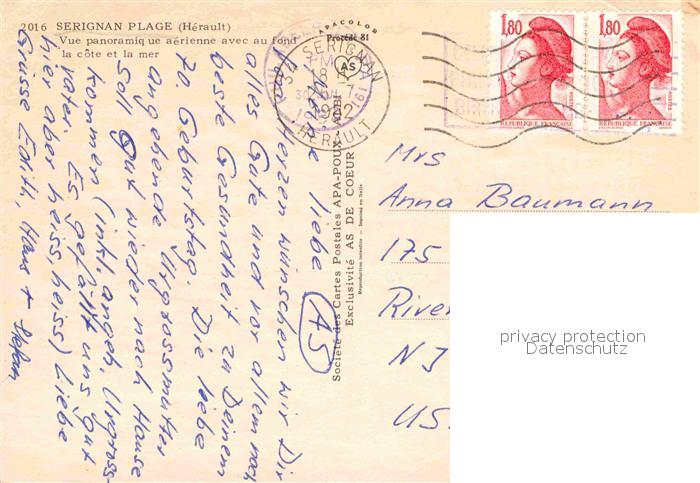 2016 SERIGNAN PLAGE (Hérault)
Vue panoramique aérienne avec au fond
la côte et la mer
APACOLOR
Procédé 81
34 SERIGNAN
HERAULT
1,80
1,80
POSTES
REPUBLIQUE FRANÇAISE
REPUBLIQUE FRANÇAISE
liebe
Von Herzen wünschen wir Dir
alles Gute und vor allem noch
beste Gesundheit zu Deinem
70. Geburtstag. Die liebe
angehende Urgrossmutter
soll gut wieder nach Hause
kommen (inkl. angeh. Urgross-
vater. Es gefällt uns gut
hier aber heiss, heiss) Liebe
Grüsse Edith, Hans + Stefan
AS
Société des Cartes Postales APA-POUX - ALBI
Exclusivité AS DE COEUR
Reproduction interdite - Printed in Italie
Mrs
Anna Baumann
175
River
NJ
US
privacy protection
Datenschutz